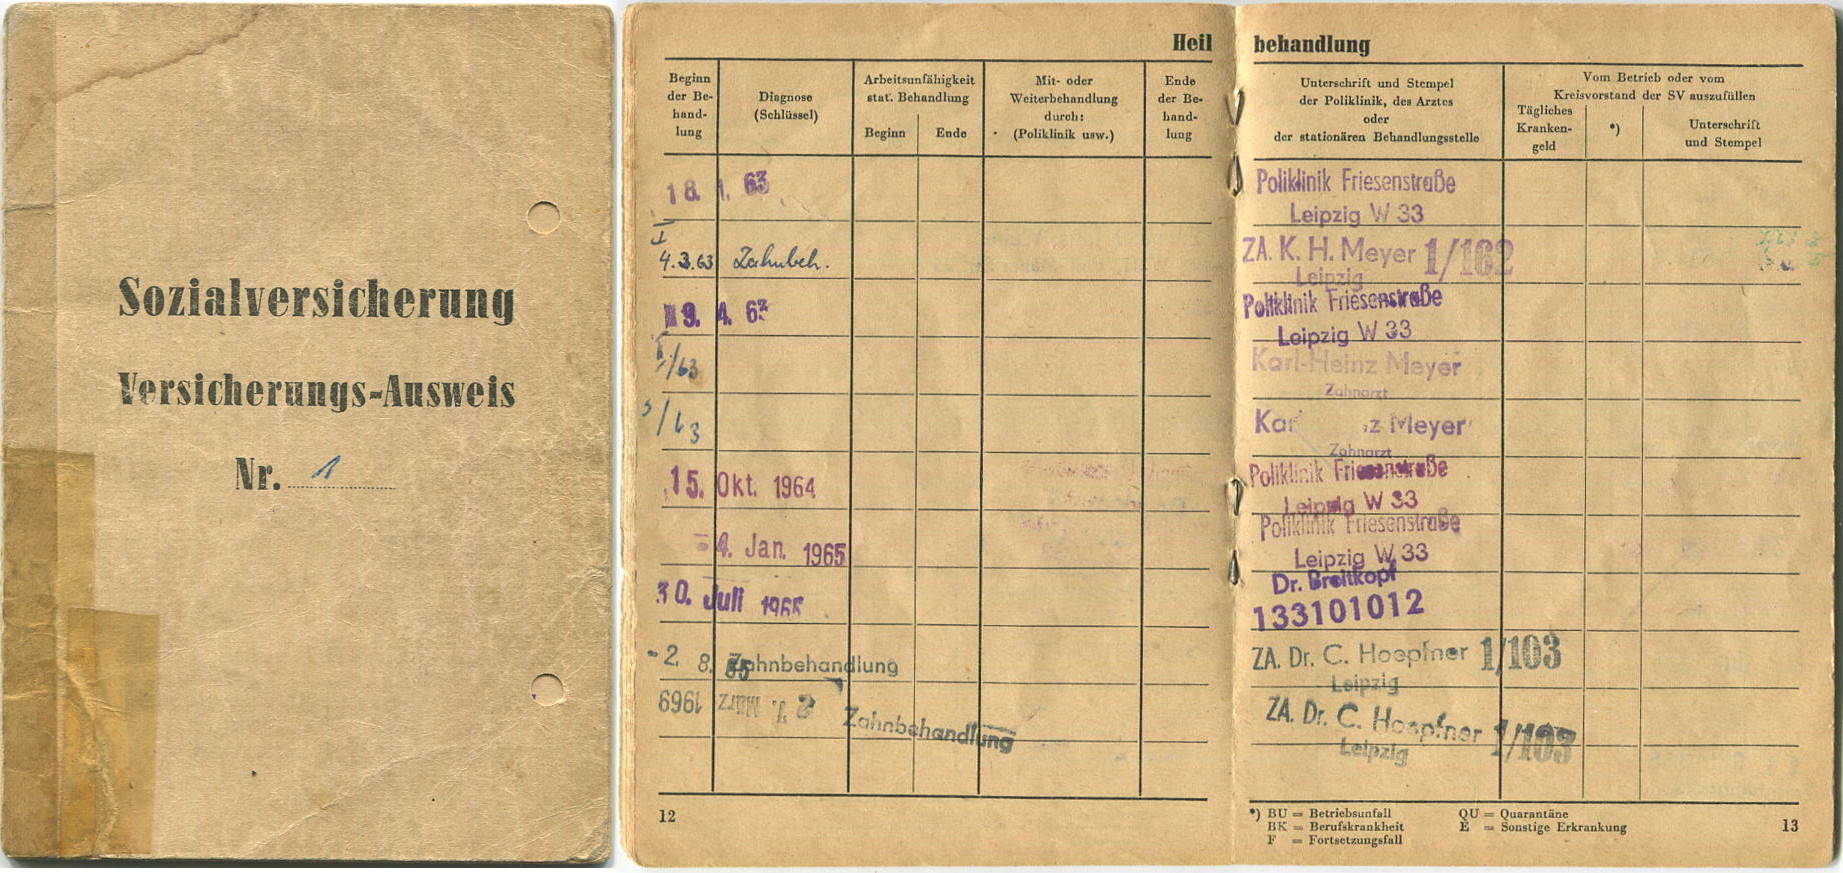 Sozialversicherung
Versicherungs-Ausweis
Nr. 1
Heil
Beginn der Be- hand- lung
Diagnose (Schlüssel)
Arbeitsunfähigkeit stat. Behandlung
Beginn
Ende
Mit- oder Weiterbehandlung durch: (Poliklinik usw.)
Ende der Be- hand- lung
18. 1. 63
4.3.63 Zahnbeh.
9. 4. 63
/63
/63
15. Okt. 1964
4. Jan. 1965
30. Juli 1965
-2. 8. 65 Zahnbehandlung
März 1969 Zahnbehandlung
12
behandlung
Unterschrift und Stempel
der Poliklinik, des Arztes
oder
der stationären Behandlungsstelle
Vom Betrieb oder vom
Kreisvorstand der SV auszufüllen
Tägliches Kranken- geld
*)
Unterschrift und Stempel
Poliklinik Friesenstraße
Leipzig W 33
ZA. K. H. Meyer 1/162
Leipzig
Poliklinik Friesenstraße
Leipzig W 33
Karl-Heinz Meyer
Zahnarzt
Kar z Meyer
Zahnarzt
Poliklinik Friesenstraße
Leipzig W 33
Poliklinik Friesenstraße
Leipzig W 33
Dr. Breitkopf
133101012
ZA. Dr. C. Hoepfner 1/103
Leipzig
ZA. Dr. C. Hoepfner 1/103
Leipzig
*) BU = Betriebsunfall QU = Quarantäne
BK = Berufskrankheit E = Sonstige Erkrankung
F = Fortsetzungsfall
13